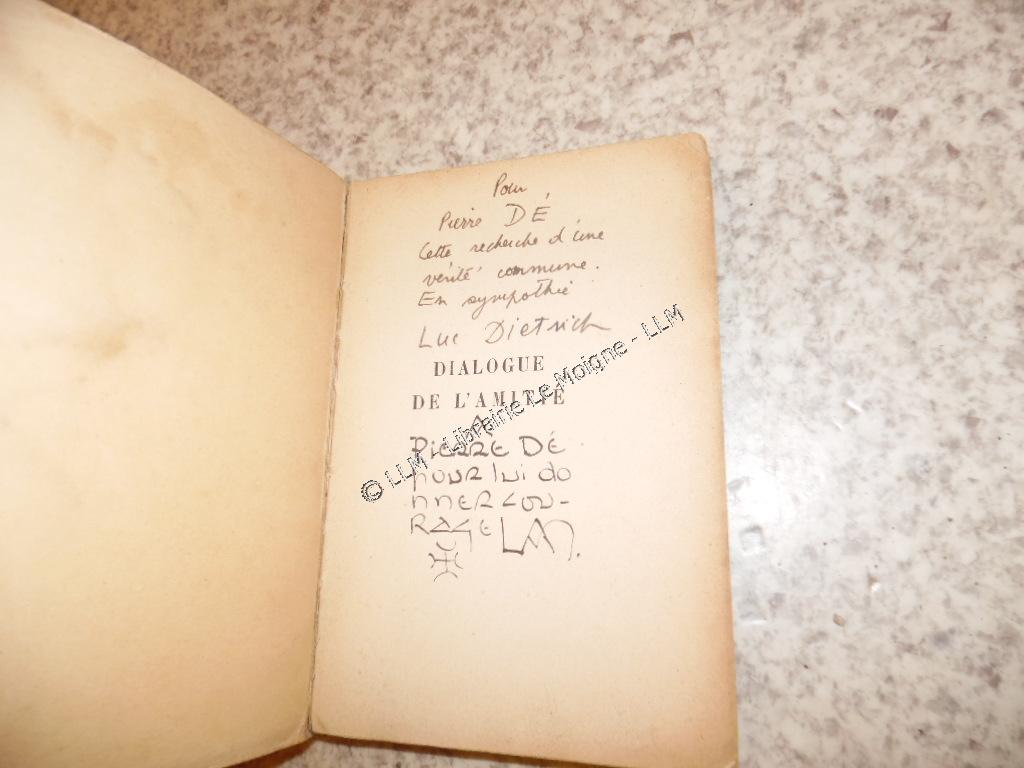 Pour
Pierre DÉ
Cette recherche d'une
vérité commune.
En sympathie
Luc Dietrich
DIALOGUE
DE L'AMITIÉ
A
PIERRE DÉ
POUR lui do
nnER COU-
RAGE
© LLM - Librairie Le Moigne - LLM